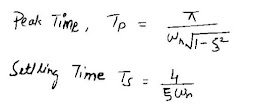 Peak Time, Tp = π / ωn√1-ξ²
Settling Time Ts = 4 / ξωn